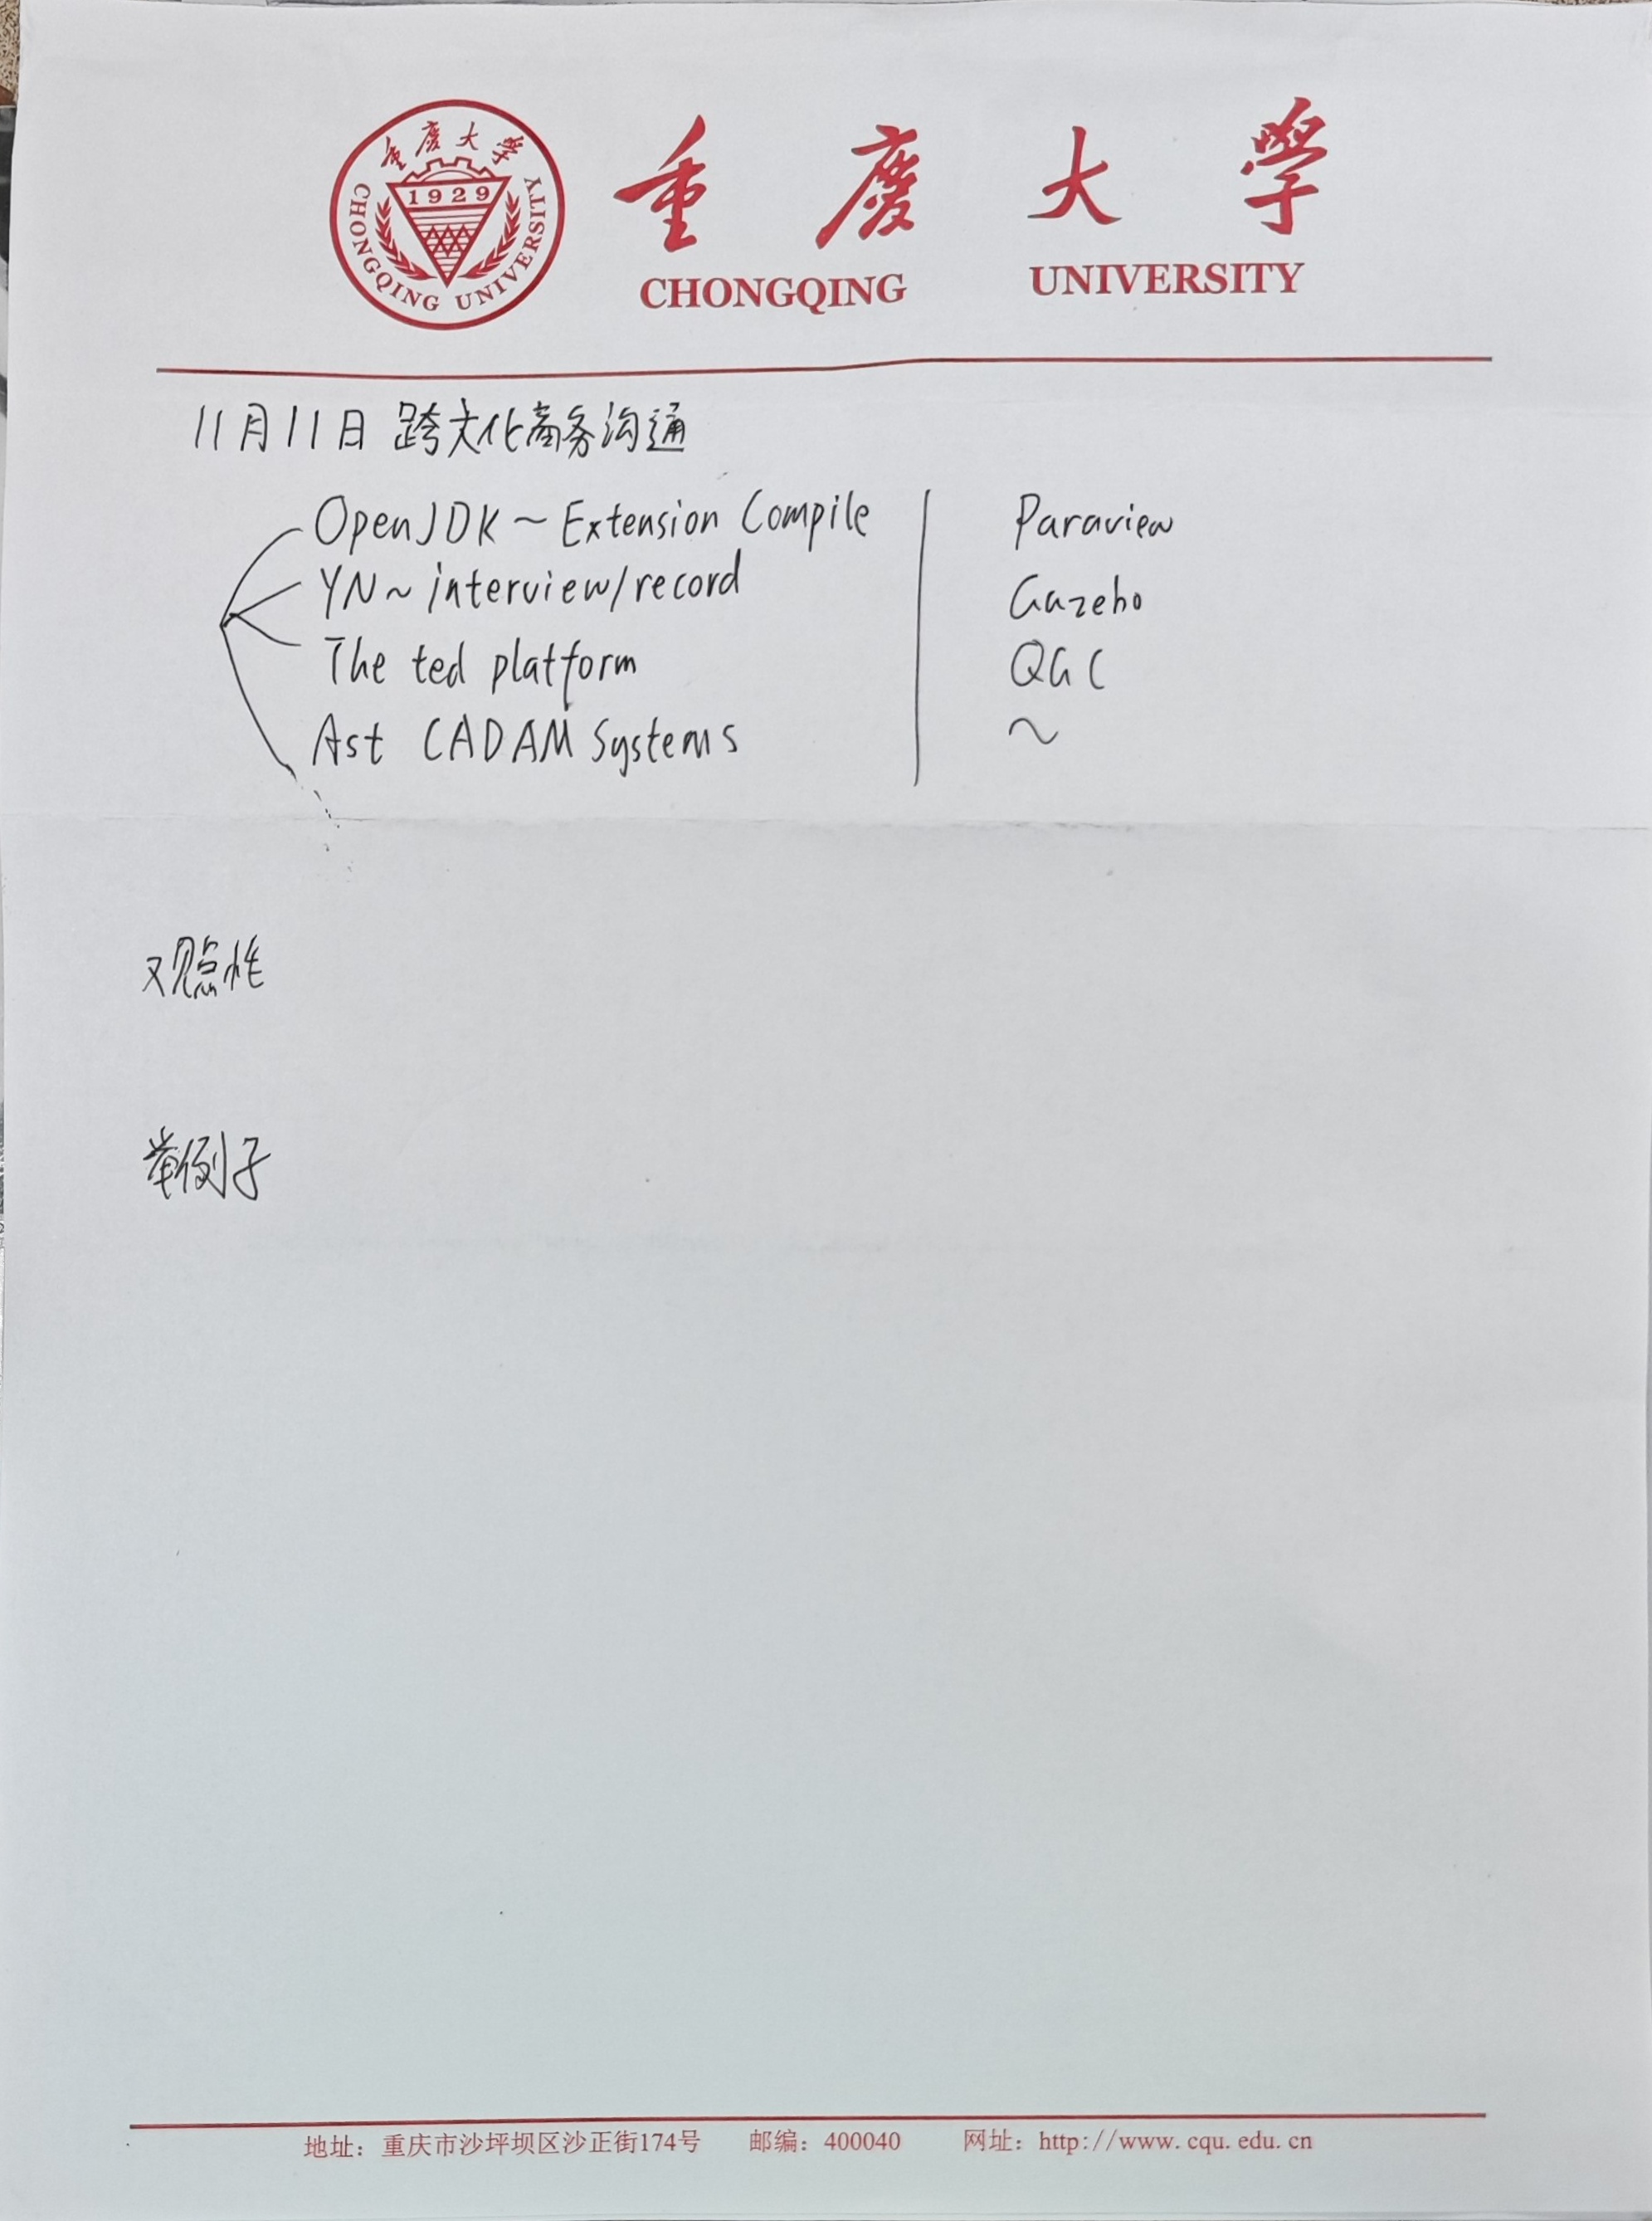 重庆大学
1929
CHONGQING UNIVERSITY
重慶大學
CHONGQING UNIVERSITY
11月11日 跨文化商务沟通
OpenJDK ~ Extension Compile
YN ~ interview/record
The ted platform
Ast CADAM Systems
Paraview
Gazebo
QGC
~
观点性
举例子
地址：重庆市沙坪坝区沙正街174号 邮编：400040 网址：http://www.cqu.edu.cn